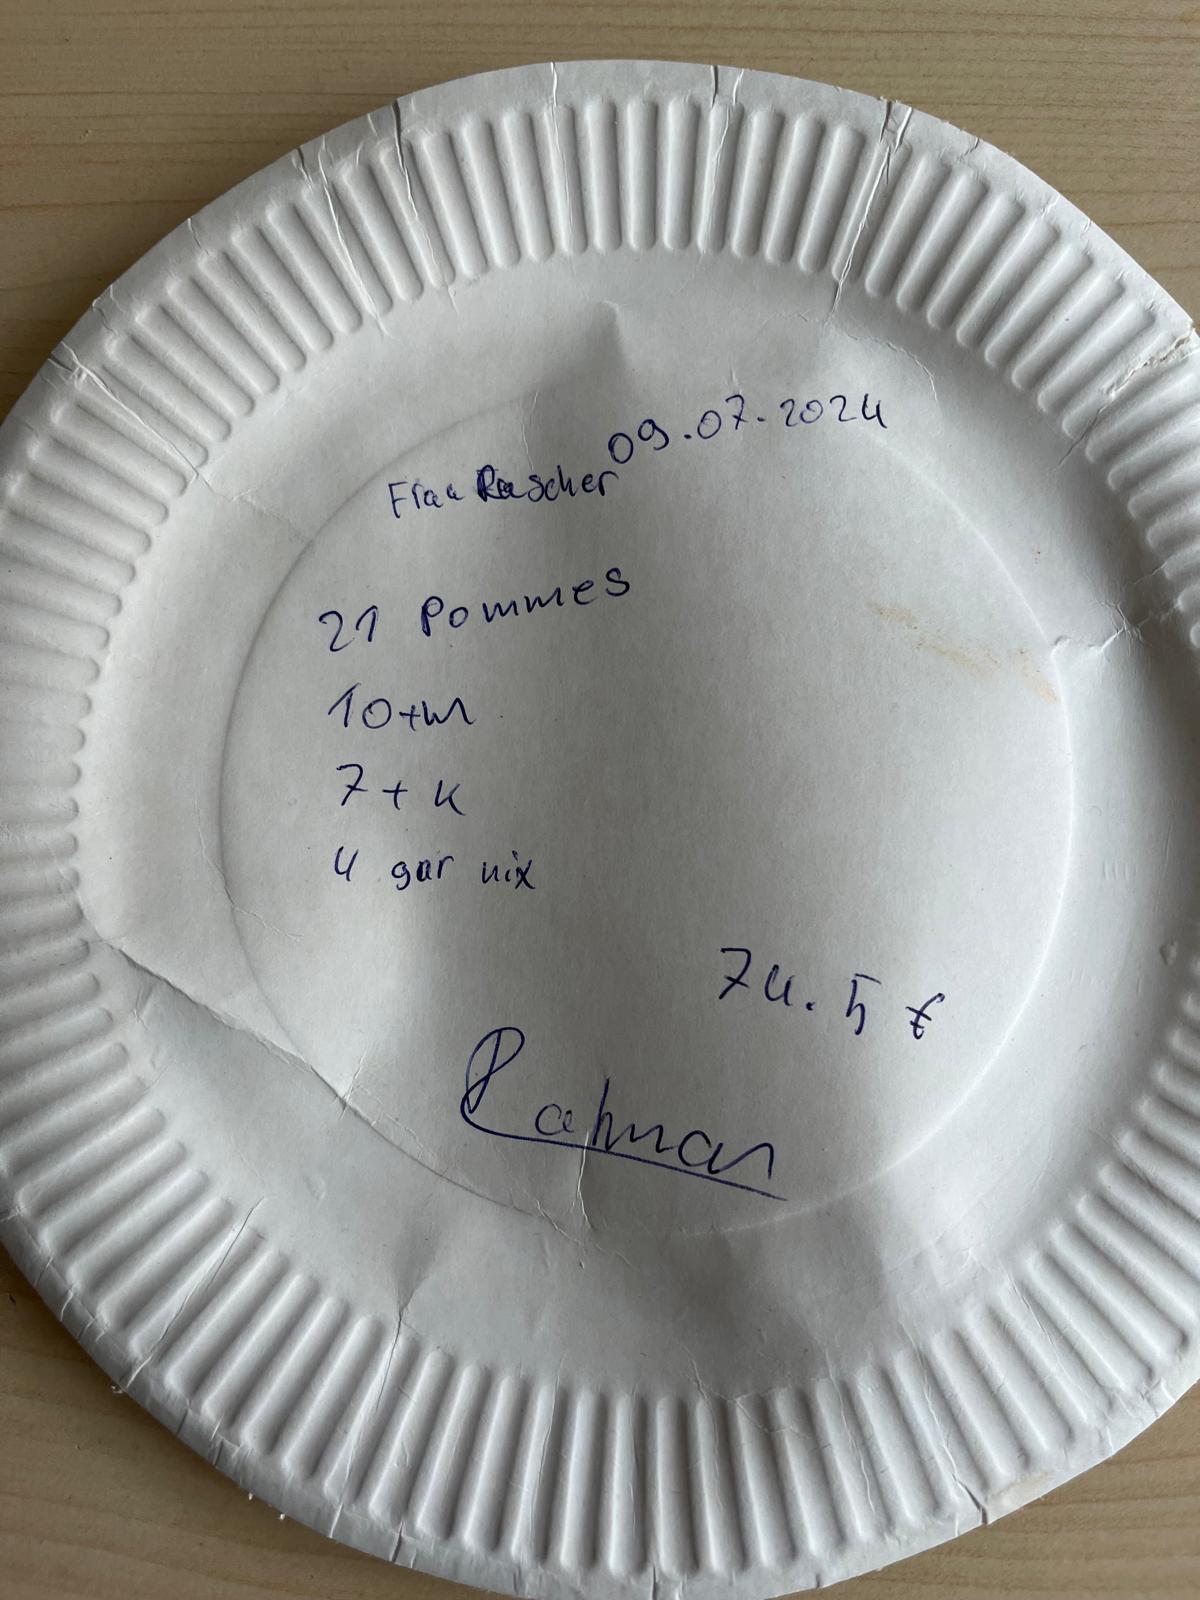 09.07.2024
Frau Rascher
21 Pommes
10+M
7+K
4 gar nix
74.5 €
Rahman